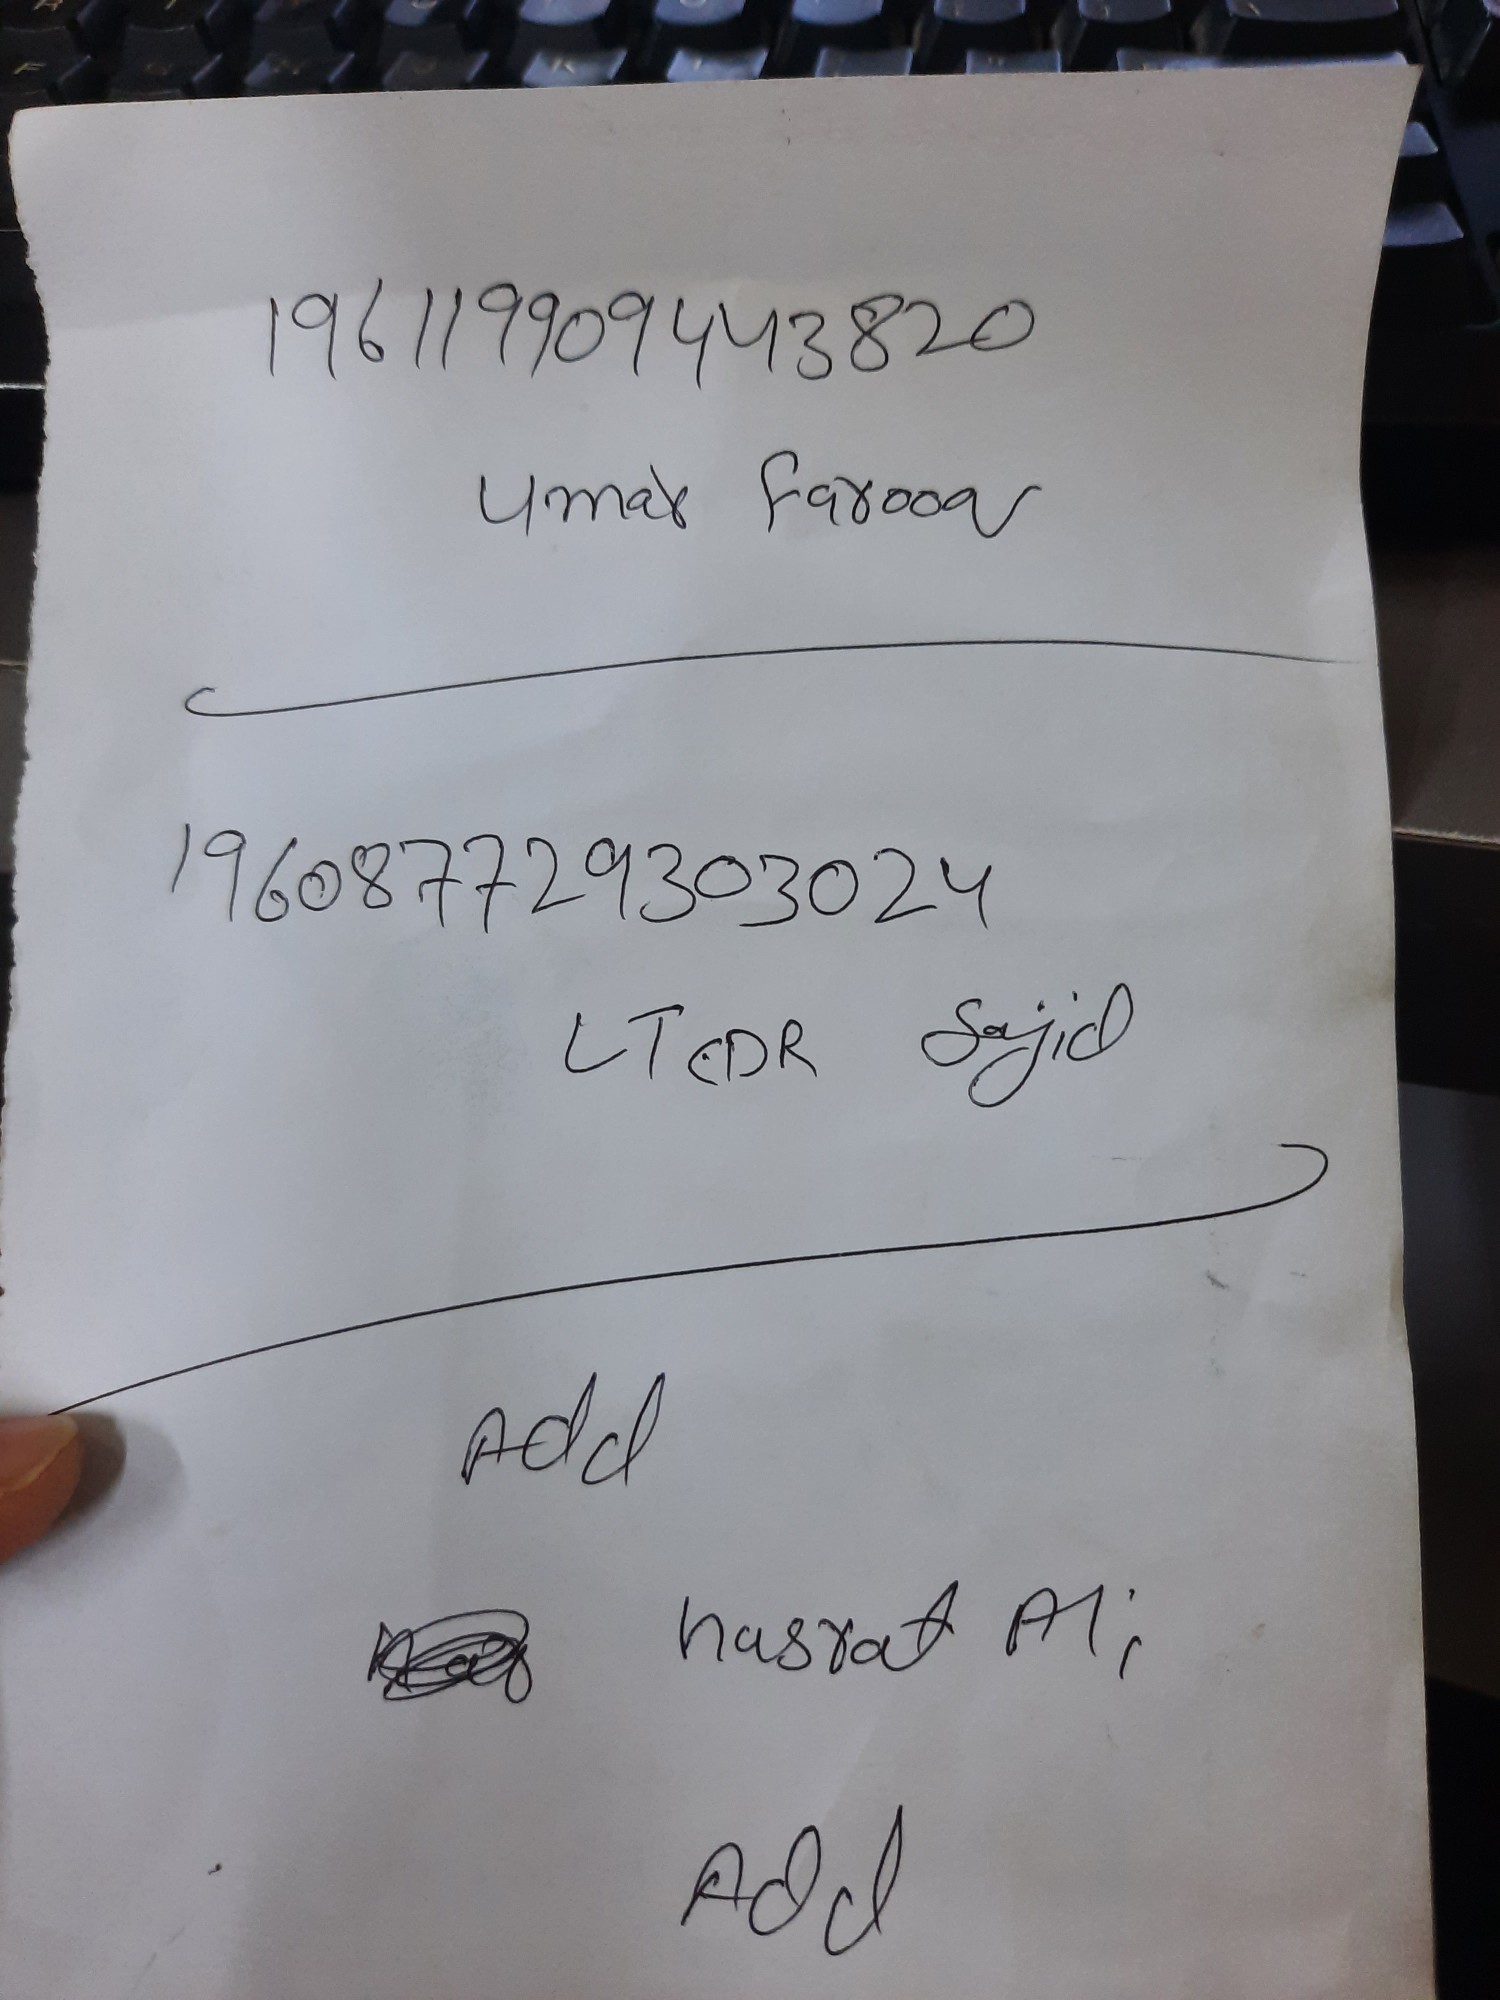 196119909443820
Umar Farooq
196087729303024
LT CDR Sajid
Add
nasrat Ali
Add